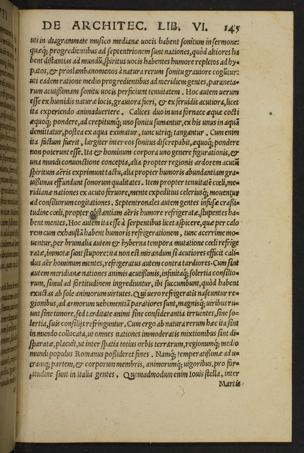 DE ARCHITEC. LIB. VI. 145
uti in diagrammate musico mediana vocis habent sonitum in sermone:
quæq; progredientibus ad septentrionem sunt nationes, quòd altiores ha
bent distantias ad mundū, spiritus vocis habentes humore repletos ad hy
patos, & proslambanomenos à natura rerum sonitu graviore coguntur:
uti eadem ratione medio progredientibus ad meridiem gentes, paraneta-
rum acutissimam sonitu vocis perficiunt tenuitatem. Hoc autem verum
esse ex humidis naturæ locis, graviora fieri, & ex fervidis acutiora, licet
ita experiendo animadvertere. Calices duo in una fornace æque cocti
æquoq; pondere, ad crepitumq; uno sonitu sumantur, ex his unus in aquā
demittatur, postea ex aqua eximatur, tunc utriq; tangantur. Cum enim
ita factum fuerit, largiter inter eos sonitus discrepabit, æquoq; pondere
non poterunt esse. Ita & hominum corpora uno genere figurationis, &
una mundi coniunctione concepta, alia propter regionis ardorem acutū
spiritum aëris exprimunt tactu, alia propter humoris abundantiam gra-
vissimas effundunt sonorum qualitates. Item propter tenuitatē cœli, me-
ridianæ nationes ex acuto fervore, mente expeditius celeriusq; moventur
ad consiliorum cogitationes. Septentrionales autem gentes infusæ crassi-
tudine cœli, propter obstantiam aëris humore refrigeratæ, stupentes ha-
bent mentes. Hoc autem ita esse à serpentibus licet aspicere, quæ per calo
rem cum exhaustā habent humoris refrigerationem, tunc acerrime mo-
ventur, per brumalia autem & hyberna tempora mutatione cœli refrige
ratæ, immotæ sunt stupore: ita non est mirandum si acutiores efficit cali-
dus aër hominum mentes, refrigeratus autem contra tardiores. Cum sint
autem meridianæ nationes animis acutissimis, infinitaq; solertia consilio-
rum, simul ad fortitudinem ingrediuntur, ibi succumbunt, quòd habent
exuctas ab sole animorum virtutes. Qui vero refrigeratis nascuntur re-
gionibus, ad armorum vehementiā paratiores sunt, magnisq; viribus ru-
unt sine timore, sed tarditate animi sine considerantia irruentes, sine so-
lertia, suis consiliis refringuntur. Cum ergo ab natura rerum hæc ita sint
in mundo collocata, ut omnes nationes immoderatis mixtionibus sint di-
sparatæ, placuit, ut inter spatia totius orbis terrarum, regionumq; medio
mundi populus Romanus possideret fines. Namq; temperatissimæ ad u-
tranq; partem, & corporum membris, animorumq; vigoribus, pro for-
titudine sunt in italia gentes. Quemadmodum enim Iovis stella, inter
Martis